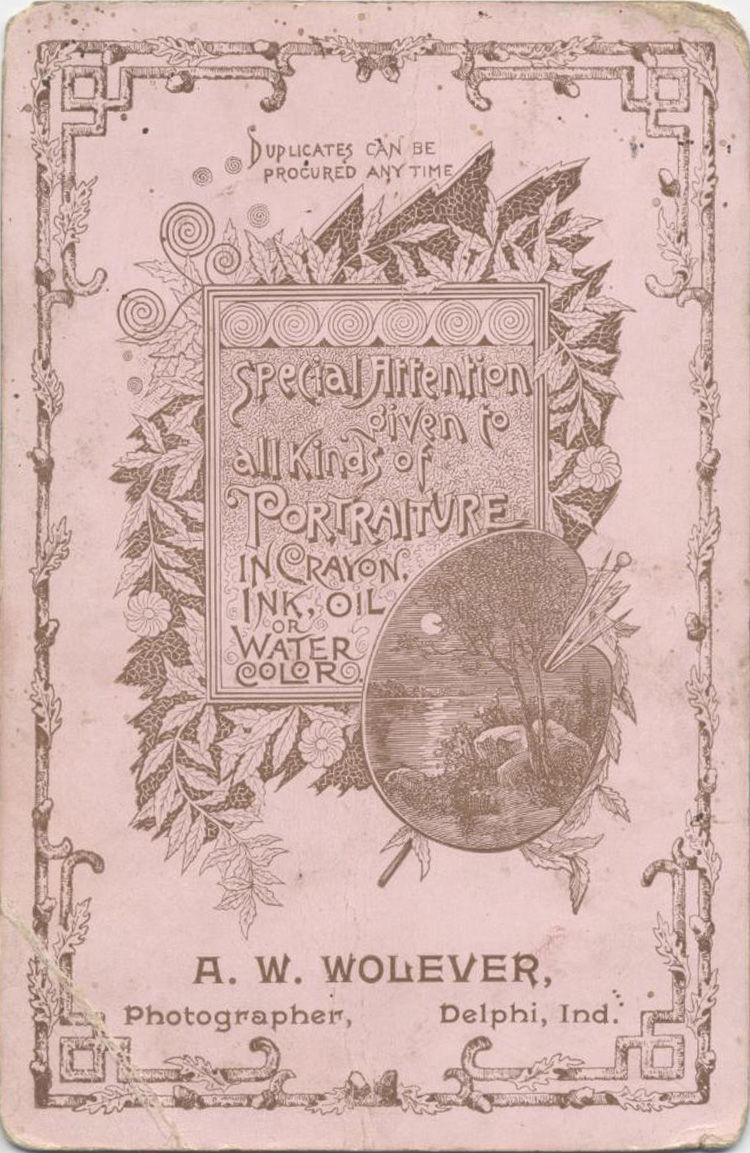 Duplicates can be
procured any time
Special Attention
given to
all Kinds of
PORTRAITURE
IN CRAYON,
INK, OIL
OR
WATER
COLOR.
A. W. WOLEVER,
Photographer, Delphi, Ind.